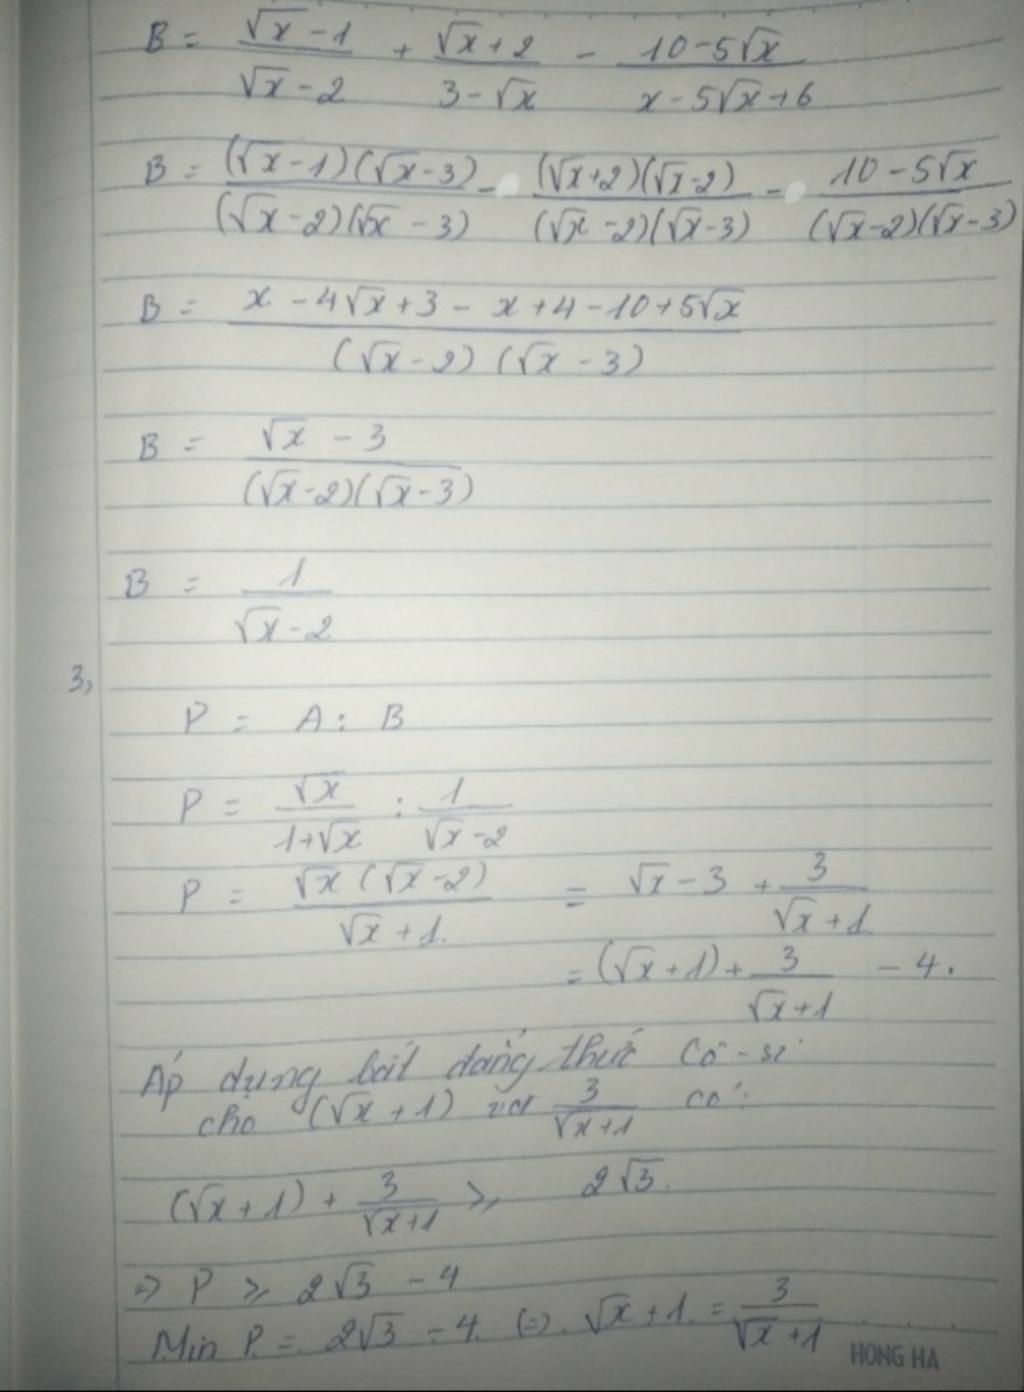 B = (√x - 1)/(√x - 2) + (√x + 2)/(3 - √x) - (10 - 5√x)/(x - 5√x + 6)
B = ((√x - 1)(√x - 3))/((√x - 2)(√x - 3)) - ((√x + 2)(√x - 2))/((√x - 2)(√x - 3)) - (10 - 5√x)/((√x - 2)(√x - 3))
B = (x - 4√x + 3 - x + 4 - 10 + 5√x)/((√x - 2)(√x - 3))
B = (√x - 3)/((√x - 2)(√x - 3))
B = 1/(√x - 2)
3,
P = A : B
P = √x/(1 + √x) : 1/(√x - 2)
P = (√x(√x - 2))/(√x + 1) = √x - 3 + 3/(√x + 1)
= (√x + 1) + 3/(√x + 1) - 4.
Áp dụng bất đẳng thức Cô-si
cho (√x + 1) và 3/(√x + 1) có:
(√x + 1) + 3/(√x + 1) ≥ 2√3.
=> P ≥ 2√3 - 4
Min P = 2√3 - 4 (=) √x + 1 = 3/(√x + 1)
HONG HA